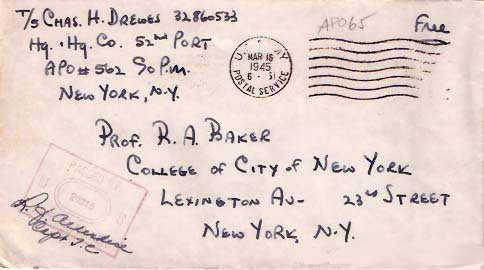 T/5 Chas. H. Drewes 32860533
Hq. & Hq. Co. 52nd Port
APO # 562 % P.M.
New York, N.Y.
APO 65
Free
MAR 16
1945
POSTAL SERVICE
Prof. R. A. Baker
College of City of New York
Lexington Av - 23rd Street
New York, N.Y.
PASSED BY
U S